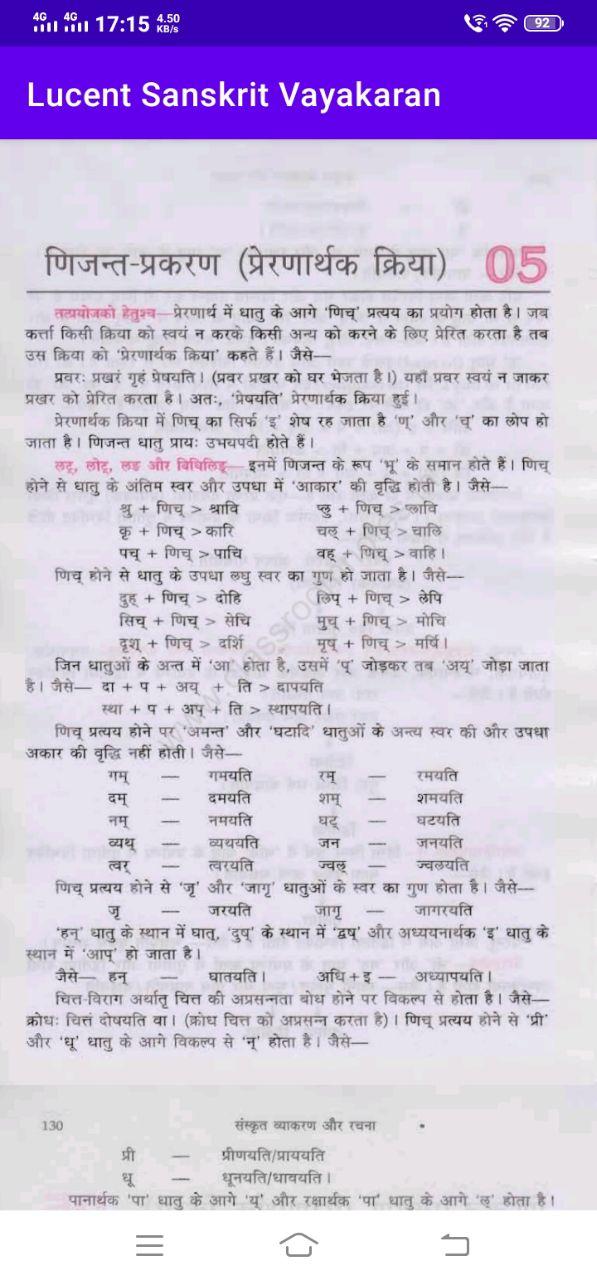 4G 4G 17:15 4.50 KB/s 92
Lucent Sanskrit Vayakaran
णिजन्त-प्रकरण (प्रेरणार्थक क्रिया) 05
तत्प्रयोजको हेतुश्च—प्रेरणार्थ में धातु के आगे ‘णिच्’ प्रत्यय का प्रयोग होता है। जब
कर्त्ता किसी क्रिया को स्वयं न करके किसी अन्य को करने के लिए प्रेरित करता है तब
उस क्रिया को ‘प्रेरणार्थक क्रिया’ कहते हैं। जैसे—
प्रवरः प्रखरं गृहं प्रेषयति। (प्रवर प्रखर को घर भेजता है।) यहाँ प्रवर स्वयं न जाकर
प्रखर को प्रेरित करता है। अतः, ‘प्रेषयति’ प्रेरणार्थक क्रिया हुई।
प्रेरणार्थक क्रिया में णिच् का सिर्फ ‘इ’ शेष रह जाता है ‘ण्’ और ‘च्’ का लोप हो
जाता है। णिजन्त धातु प्रायः उभयपदी होते हैं।
लट्, लोट्, लङ और विधिलिङ्— इनमें णिजन्त के रूप ‘भू’ के समान होते हैं। णिच्
होने से धातु के अंतिम स्वर और उपधा में ‘आकार’ की वृद्धि होती है। जैसे—
श्रु + णिच् > श्रावि प्लु + णिच् > प्लावि
कृ + णिच् > कारि चल् + णिच् > चालि
पच् + णिच् > पाचि वह् + णिच् > वाहि।
णिच् होने से धातु के उपधा लघु स्वर का गुण हो जाता है। जैसे—
दुह् + णिच् > दोहि लिप् + णिच् > लेपि
सिच् + णिच् > सेचि मुच् + णिच् > मोचि
दृश् + णिच् > दर्शि मृष् + णिच् > मर्षि।
जिन धातुओं के अन्त में ‘आ’ होता है, उसमें ‘प्’ जोड़कर तब ‘अय्’ जोड़ा जाता
है। जैसे— दा + प + अय् + ति > दापयति
स्था + प + अप् + ति > स्थापयति।
णिच् प्रत्यय होने पर ‘अमन्त’ और ‘घटादि’ धातुओं के अन्त्य स्वर की और उपधा
अकार की वृद्धि नहीं होती। जैसे—
गम् — गमयति रम् — रमयति
दम् — दमयति शम् — शमयति
नम् — नमयति घट् — घटयति
व्यथ् — व्यथयति जन — जनयति
त्वर् — त्वरयति ज्वल् — ज्वलयति
णिच् प्रत्यय होने से ‘जृ’ और ‘जागृ’ धातुओं के स्वर का गुण होता है। जैसे—
जृ — जरयति जागृ — जागरयति
‘हन्’ धातु के स्थान में घात्, ‘दुष्’ के स्थान में ‘द्वष्’ और अध्ययनार्थक ‘इ’ धातु के
स्थान में ‘आप्’ हो जाता है।
जैसे— हन् — घातयति। अधि + इ — अध्यापयति।
चित्त-विराग अर्थात् चित्त की अप्रसन्नता बोध होने पर विकल्प से होता है। जैसे—
क्रोधः चित्तं दोषयति वा। (क्रोध चित्त को अप्रसन्न करता है)। णिच् प्रत्यय होने से ‘प्री’
और ‘धू’ धातु के आगे विकल्प से ‘न्’ होता है। जैसे—
130 संस्कृत व्याकरण और रचना
प्री — प्रीणयति/प्राययति
धू — धूनयति/धावयति।
पानार्थक ‘पा’ धातु के आगे ‘य्’ और रक्षार्थक ‘पा’ धातु के आगे ‘ल्’ होता है।